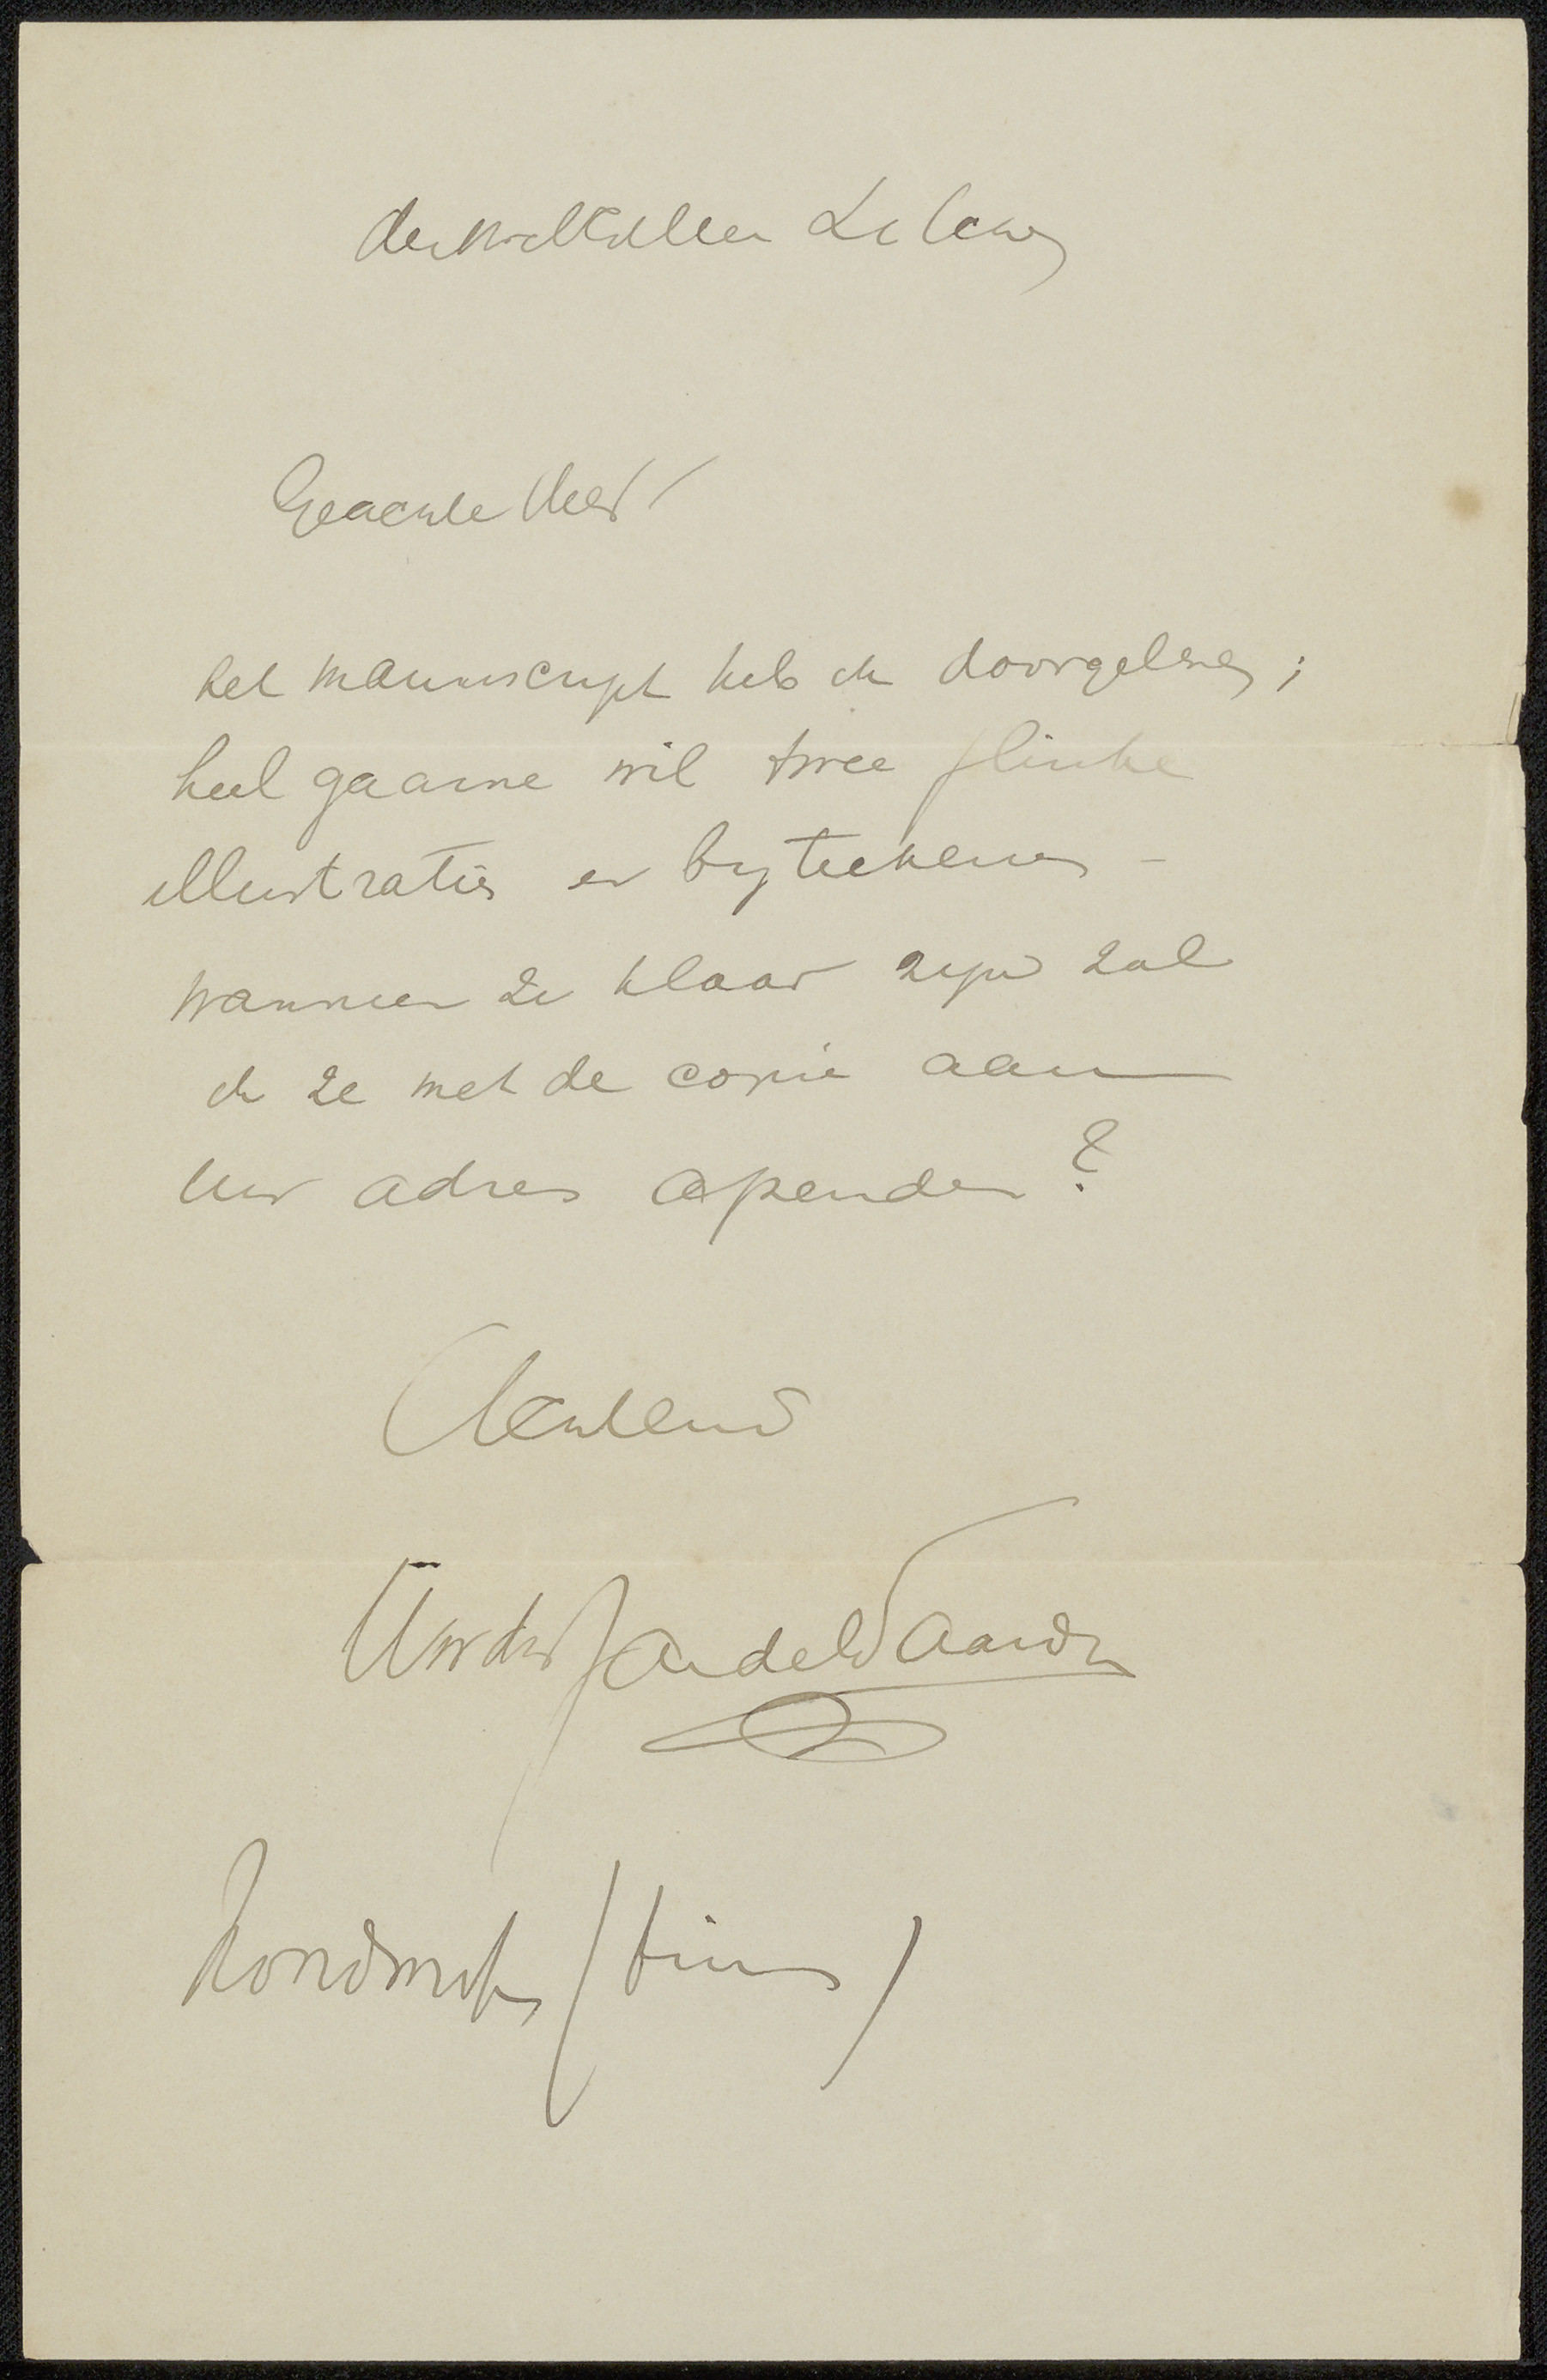 den WelEdelen Zeberg
Geachte Heer
het manuscript heb ik doorgelezen;
heel gaarne wil twee flinke
illustraties er by teekenen –
wanneer ze klaar zyn zal
ik ze met de copie aan
Uw adres opzenden?
Achtend
Uw dw Jan de Waardt
Noordwijk (binn)